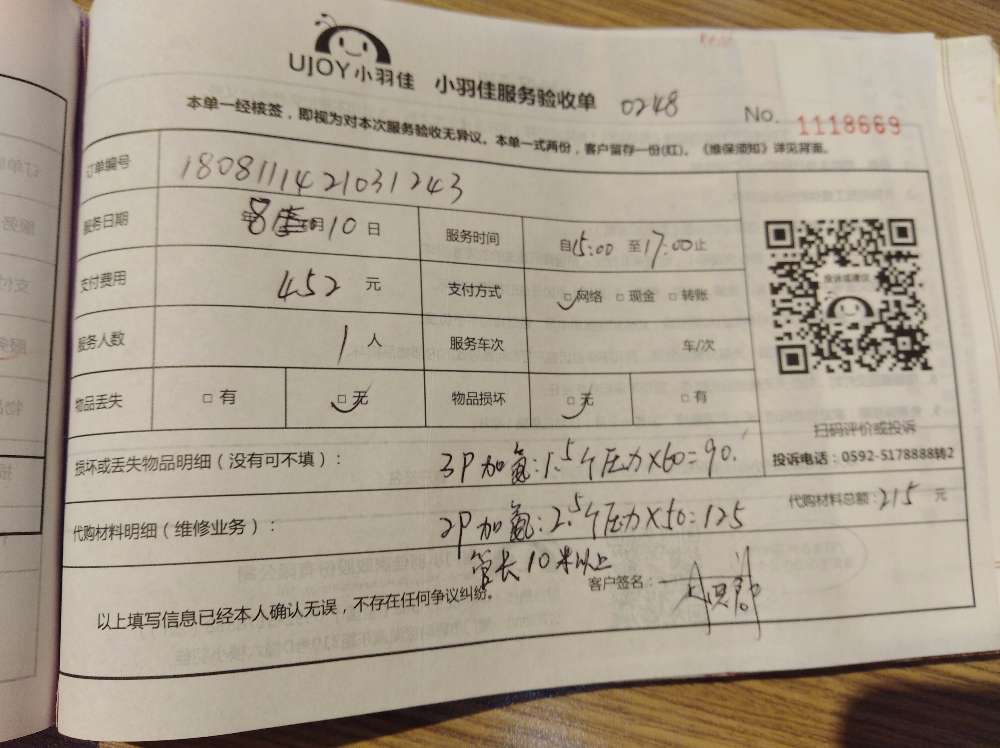 UJOY小羽佳 小羽佳服务验收单 0248 No. 1118669
本单一经核签，即视为对本次服务验收无异议。本单一式两份，客户留存一份(红)。《维保须知》详见背面。
订单编号 1808111421031243
服务日期 年 8 月 10 日 服务时间 自 15:00 至 17:00 止
支付费用 452 元 支付方式 □网络 □现金 □转账
服务人数 1 人 服务车次 车/次
物品丢失 □有 □无 物品损坏 □无 □有
投诉或建议
扫码评价或投诉
投诉电话：0592-5178888转2
损坏或丢失物品明细（没有可不填）： 3P加氨:1.5个压力×60=90.
代购材料明细（维修业务）： 2P加氨:2.5个压力×50=125 代购材料总额：215 元
管长10米以上
以上填写信息已经本人确认无误，不存在任何争议纠纷。 客户签名：